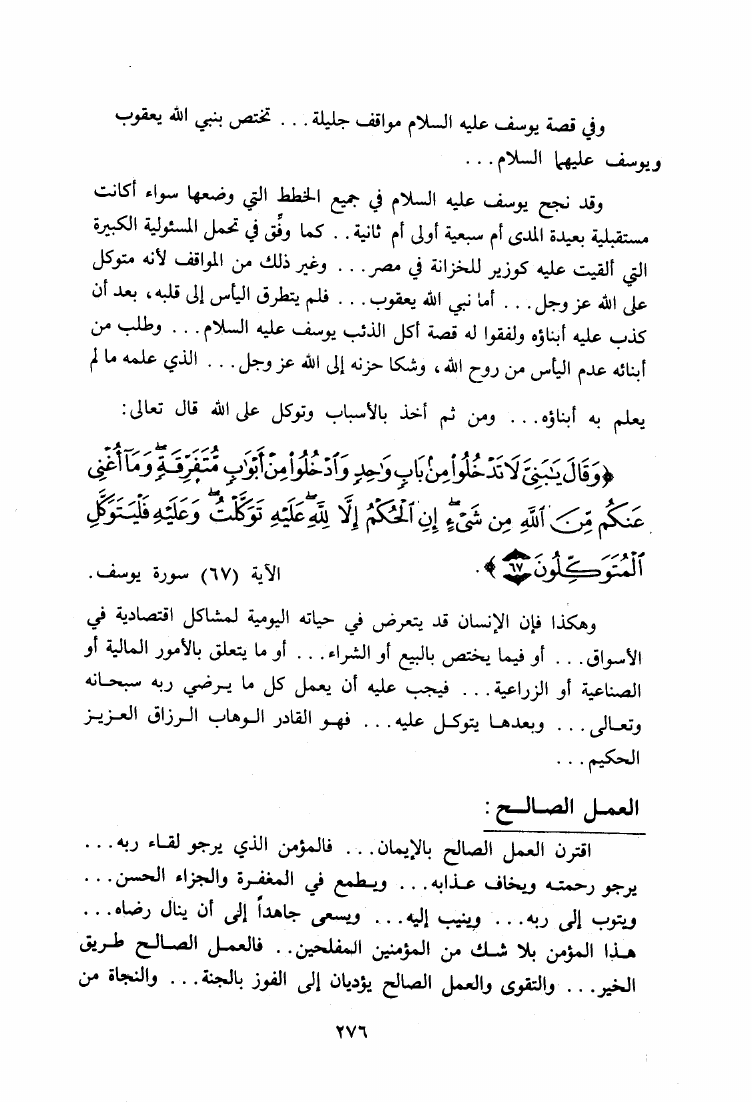 وفي قصة يوسف عليه السلام مواقف جليلة... تختص بنبي الله يعقوب
ويوسف عليهما السلام...
وقد نجح يوسف عليه السلام في جميع الخطط التي وضعها سواء أكانت
مستقبلية بعيدة المدى أم سبعية أولى أم ثانية.. كما وفِّق في تحمل المسئولية الكبيرة
التي ألقيت عليه كوزير للخزانة في مصر... وغير ذلك من المواقف لأنه متوكل
على الله عز وجل... أما نبي الله يعقوب... فلم يتطرق اليأس إلى قلبه، بعد أن
كذب عليه أبناؤه ولفقوا له قصة أكل الذئب يوسف عليه السلام... وطلب من
أبنائه عدم اليأس من روح الله، وشكا حزنه إلى الله عز وجل... الذي علمه ما لم
يعلم به أبناؤه... ومن ثم أخذ بالأسباب وتوكل على الله قال تعالى:
﴿وَقَالَ يَٰبَنِيَّ لَا تَدۡخُلُواْ مِنۢ بَابٖ وَٰحِدٖ وَٱدۡخُلُواْ مِنۡ أَبۡوَٰبٖ مُّتَفَرِّقَةٖۖ وَمَآ أُغۡنِي
عَنكُم مِّنَ ٱللَّهِ مِن شَيۡءٍۖ إِنِ ٱلۡحُكۡمُ إِلَّا لِلَّهِۖ عَلَيۡهِ تَوَكَّلۡتُۖ وَعَلَيۡهِ فَلۡيَتَوَكَّلِ
ٱلۡمُتَوَكِّلُونَ ٦٧﴾. الآية (٦٧) سورة يوسف.
وهكذا فإن الإنسان قد يتعرض في حياته اليومية لمشاكل اقتصادية في
الأسواق... أو فيما يختص بالبيع أو الشراء... أو ما يتعلق بالأمور المالية أو
الصناعية أو الزراعية... فيجب عليه أن يعمل كل ما يرضي ربه سبحانه
وتعالى... وبعدها يتوكل عليه... فهو القادر الوهاب الرزاق العزيز
الحكيم...
العمل الصالح:
اقترن العمل الصالح بالإيمان... فالمؤمن الذي يرجو لقاء ربه...
يرجو رحمته ويخاف عذابه... ويطمع في المغفرة والجزاء الحسن...
ويتوب إلى ربه... وينيب إليه... ويسعى جاهداً إلى أن ينال رضاه...
هذا المؤمن بلا شك من المؤمنين المفلحين.. فالعمل الصالح طريق
الخير... والتقوى والعمل الصالح يؤديان إلى الفوز بالجنة... والنجاة من
٢٧٦